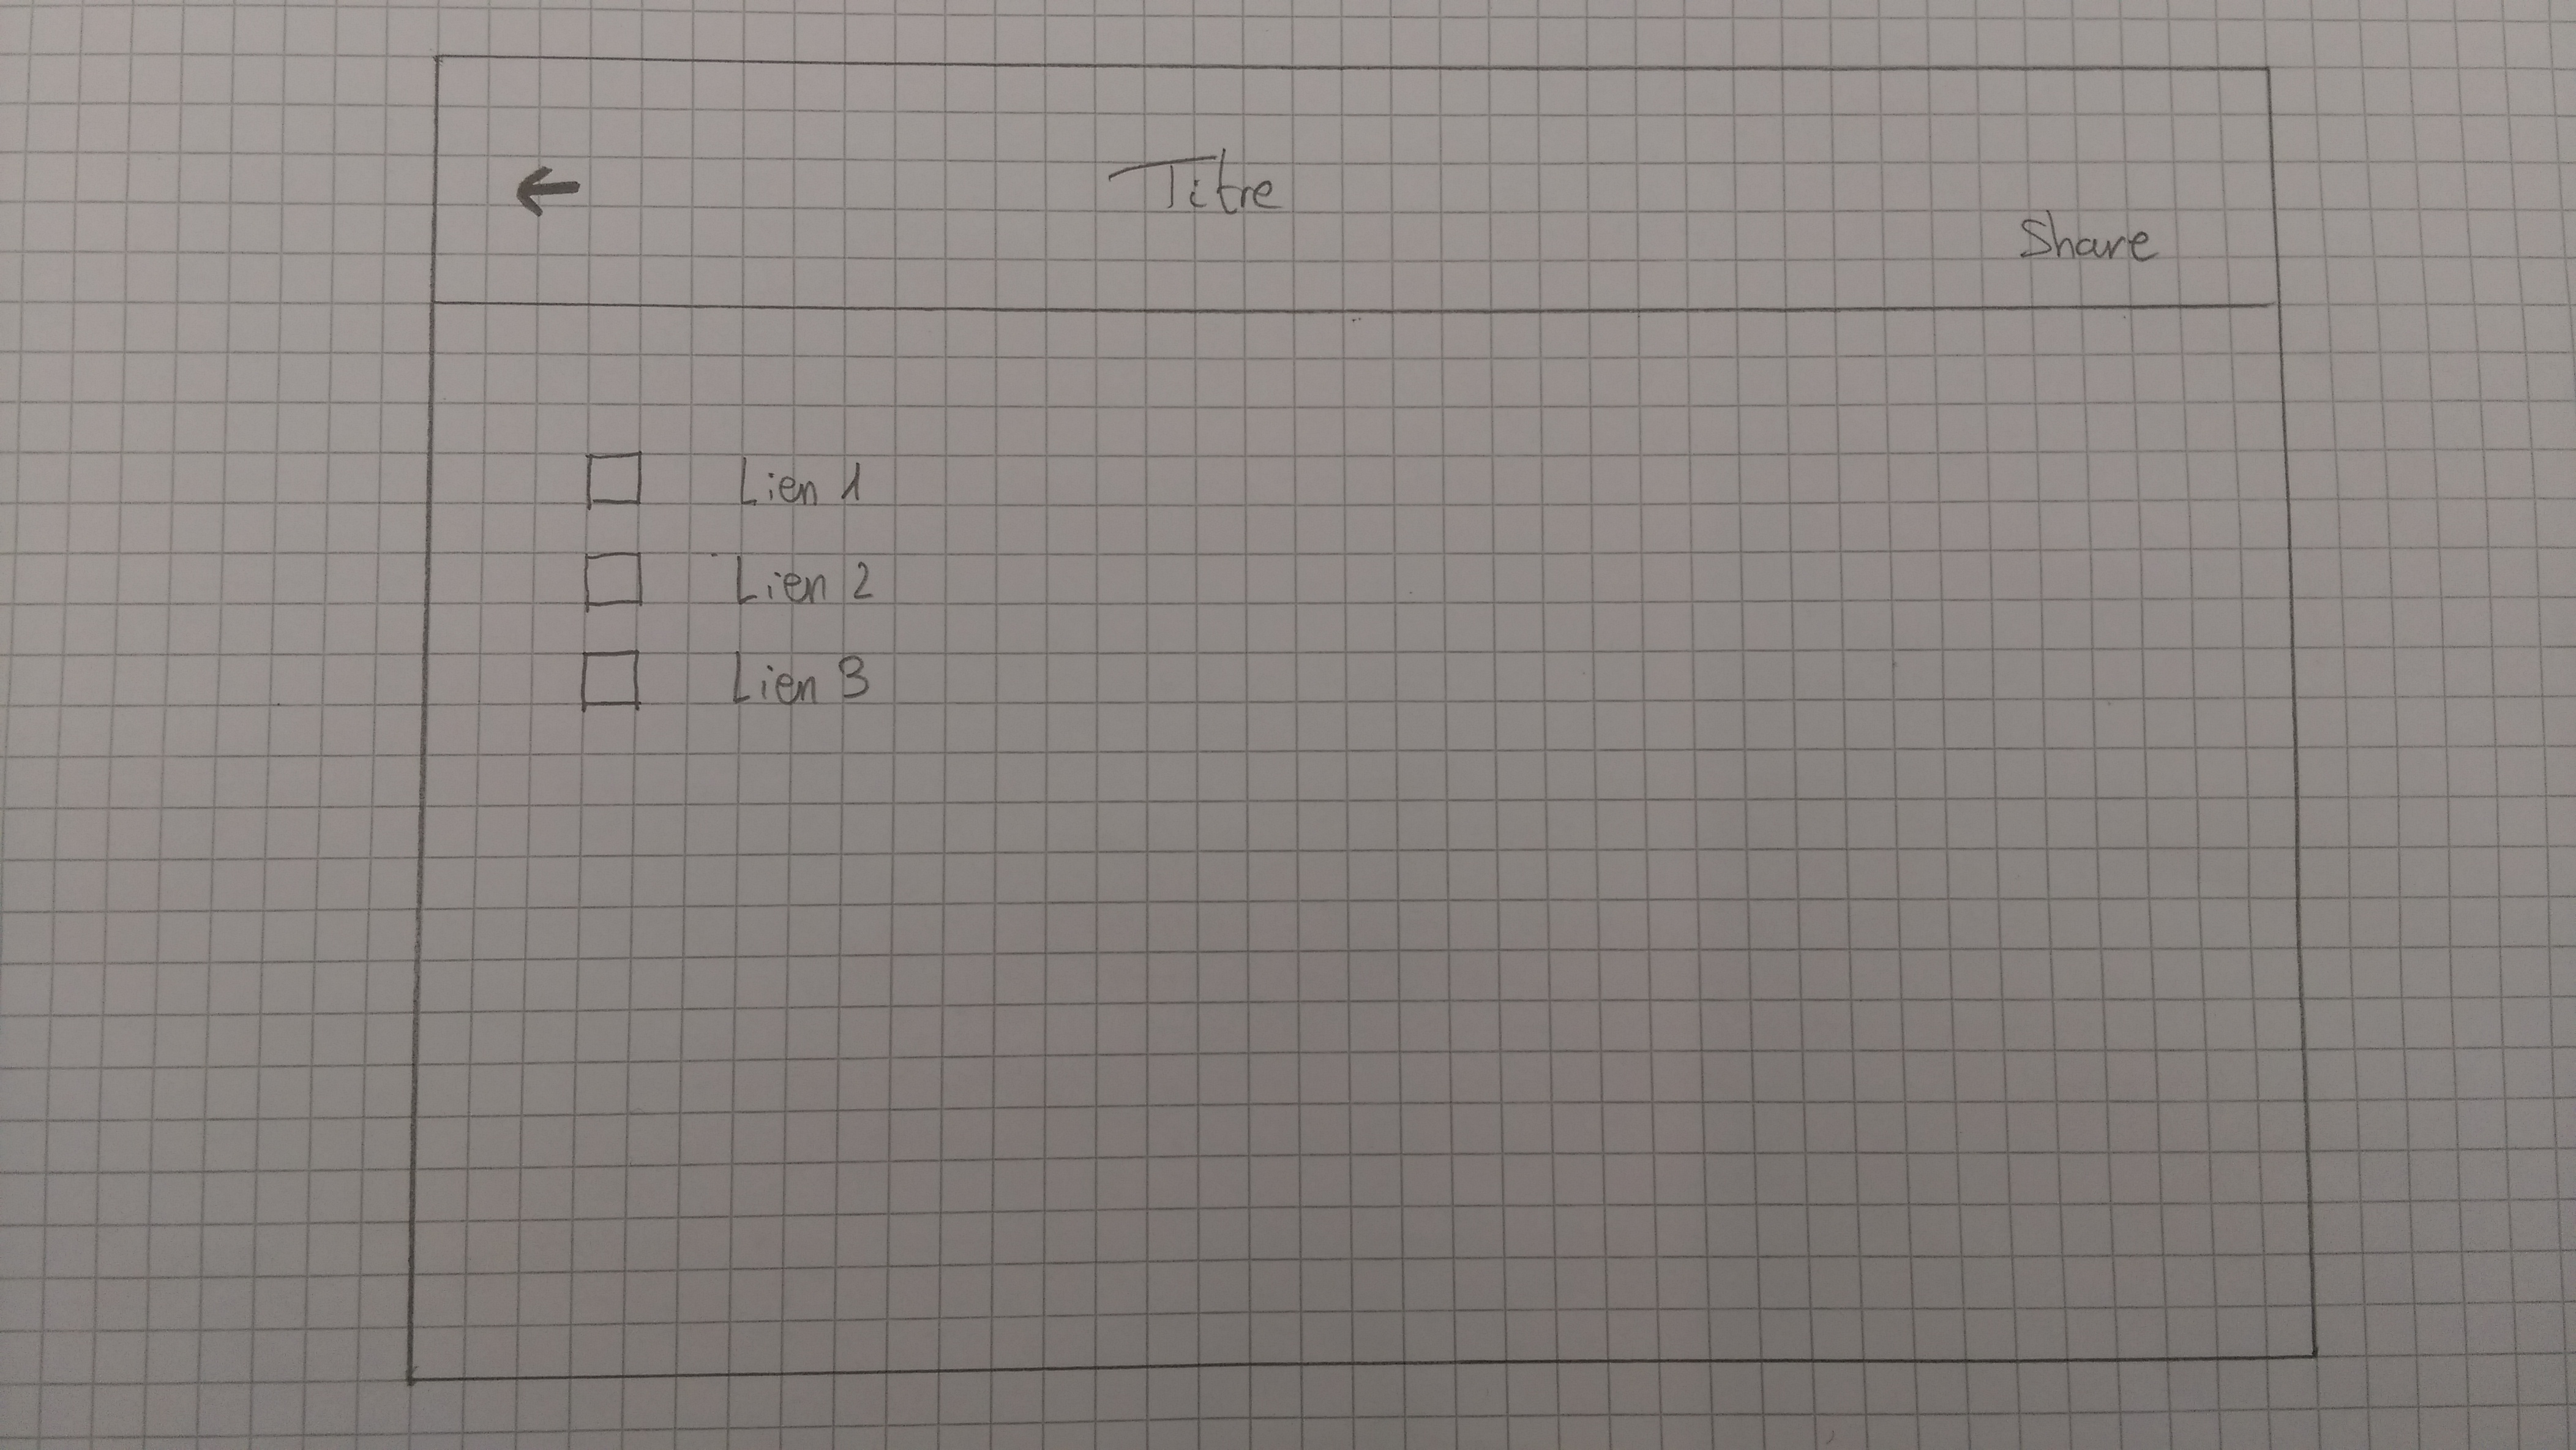 Titre
Share
Lien 1
Lien 2
Lien 3